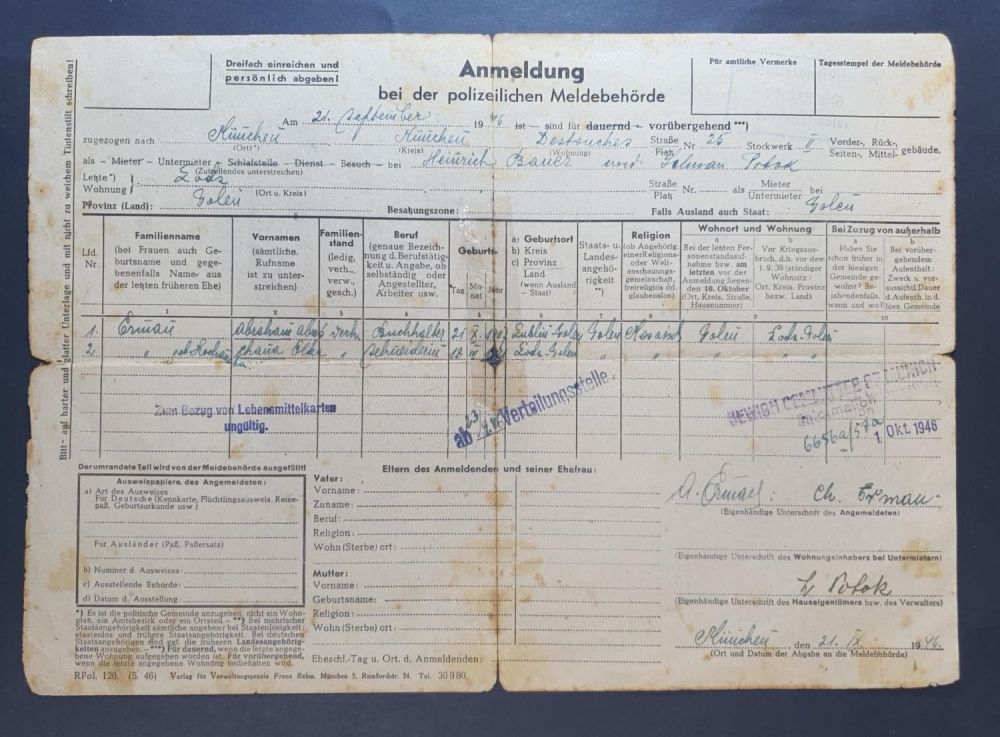 Bitte auf harter und glatter Unterlage und mit nicht zu weichem Tintenstift schreiben!
Dreifach einreichen und
persönlich abgeben!
Anmeldung
bei der polizeilichen Meldebehörde
Für amtliche Vermerke
Tagesstempel der Meldebehörde
Am 21. September 1946 ist — sind für dauernd — vorübergehend ***)
zugezogen nach München München Destouches Straße Nr. 25 Stockwerk II Vorder-, Rück-, gebäude,
(Ort*) (Kreis) (Wohnung) Platz Seiten-, Mittel-
als — Mieter — Untermieter — Schlafstelle — Dienst — Besuch — bei Heinrich Bauer und Potok
(Zutreffendes unterstreichen)
Letzte*) Wohnung Lodz
Polen (Ort u. Kreis)
Straße Platz Nr. als Mieter Untermieter bei
Provinz (Land): Besatzungszone: Falls Ausland auch Staat: Polen
Lfd. Nr.
Familienname
(bei Frauen auch Ge-
burtsname und gege-
benenfalls Name aus
der letzten früheren Ehe)
Vornamen
(sämtliche,
Rufname
ist zu unter-
streichen)
Familien-
stand
(ledig,
verh.,
verw.,
gesch.)
Beruf
(genaue Bezeich-
nung d. Berufstätig-
keit u. Angabe, ob
selbständig oder
Angestellter,
Arbeiter usw.
Geburts-
Tag Mo-nat Jahr
a) Geburtsort
b) Kreis
c) Provinz
Land
(wenn Ausland
— Staat)
Staats- u.
Landes-
angehö-
rigkeit
**)
Religion
(ob Angehörig.
einer Religions-
oder Welt-
anschauungs-
gemeinschaft,
freireligiös od.
glaubenslos)
Wohnort und Wohnung
a
Bei der letzten Per-
sonenstandsauf-
nahme bzw. am
letzten vor der
Anmeldung liegen-
den 10. Oktober
(Ort, Kreis, Straße,
Hausnummer)
b
Vor Kriegsaus-
bruch, d.h. vor dem
1. 9. 39 (ständiger
Wohnsitz:
Ort, Kreis, Straße,
Provinz bezw. Land)
Bei Zuzug von außerhalb
a
Haben Sie
schon früher in
der hiesigen
Gemeinde ge-
wohnt? Be-
jahendenfalls,
wann und wo?
b
Bei vorüber-
gehendem
Aufenthalt:
Zweck u. vor-
aussichtl. Dauer
d. Aufenth. in d.
hies. Gemeinde
1 2 3 4 5 6 7 8 9 10
1. Erman Abraham verh. Buchhalter 21 X Lublin-Polen Polen Mosaisch Polen Lodz-Polen
2 " " Chana " Schneiderin 18 Lodz-Polen " " " "
Zum Bezug von Lebensmittelkarten
ungültig.
ab 23/9.46 Verteilungsstelle
JEWISH COMMITTEE OF MUNICH
6656a/57a
1. Okt. 1946
Der umrandete Teil wird von der Meldebehörde ausgefüllt!
Ausweispapiere des Angemeldeten:
a) Art des Ausweises
Für Deutsche (Kennkarte, Flüchtlingsausweis, Reise-
paß, Geburtsurkunde usw.)
Für Ausländer (Paß, Paßersatz)
b) Nummer d. Ausweises:
c) Ausstellende Behörde:
d) Datum d. Ausstellung:
Eltern des Anmeldenden und seiner Ehefrau:
Vater:
Vorname:
Zuname:
Beruf:
Religion:
Wohn (Sterbe) ort:
Mutter:
Vorname:
Geburtsname:
Religion:
Wohn (Sterbe) ort:
Eheschl.-Tag u. Ort. d. Anmeldenden:
A. Erman: Ch. Erman.
(Eigenhändige Unterschrift des Angemeldeten)
(Eigenhändige Unterschrift des Wohnungsinhabers bei Untermietern)
Potok
(Eigenhändige Unterschrift des Hauseigentümers bzw. des Verwalters)
München, den 21. IX. 1946.
(Ort und Datum der Abgabe an die Meldebehörde)
*) Es ist die politische Gemeinde anzugeben, nicht ein Wohn-
platz, ein Amtsbezirk oder ein Ortsteil. — **) Bei mehrfacher
Staatsangehörigkeit sämtliche angeben; bei Staatenlosigkeit:
staatenlos und frühere Staatsangehörigkeit. Bei deutschen
Staatsangehörigen sind ggf. die früheren Landesangehörig-
keiten anzugeben. — ***) Für dauernd, wenn die letzte angege-
bene Wohnung aufgegeben worden ist. Für vorübergehend,
wenn die letzte angegebene Wohnung beibehalten wird.
RPol. 128. (5. 46) Verlag für Verwaltungspraxis Franz Rehm, München 5, Rumfordstr. 34. Tel. 30980.